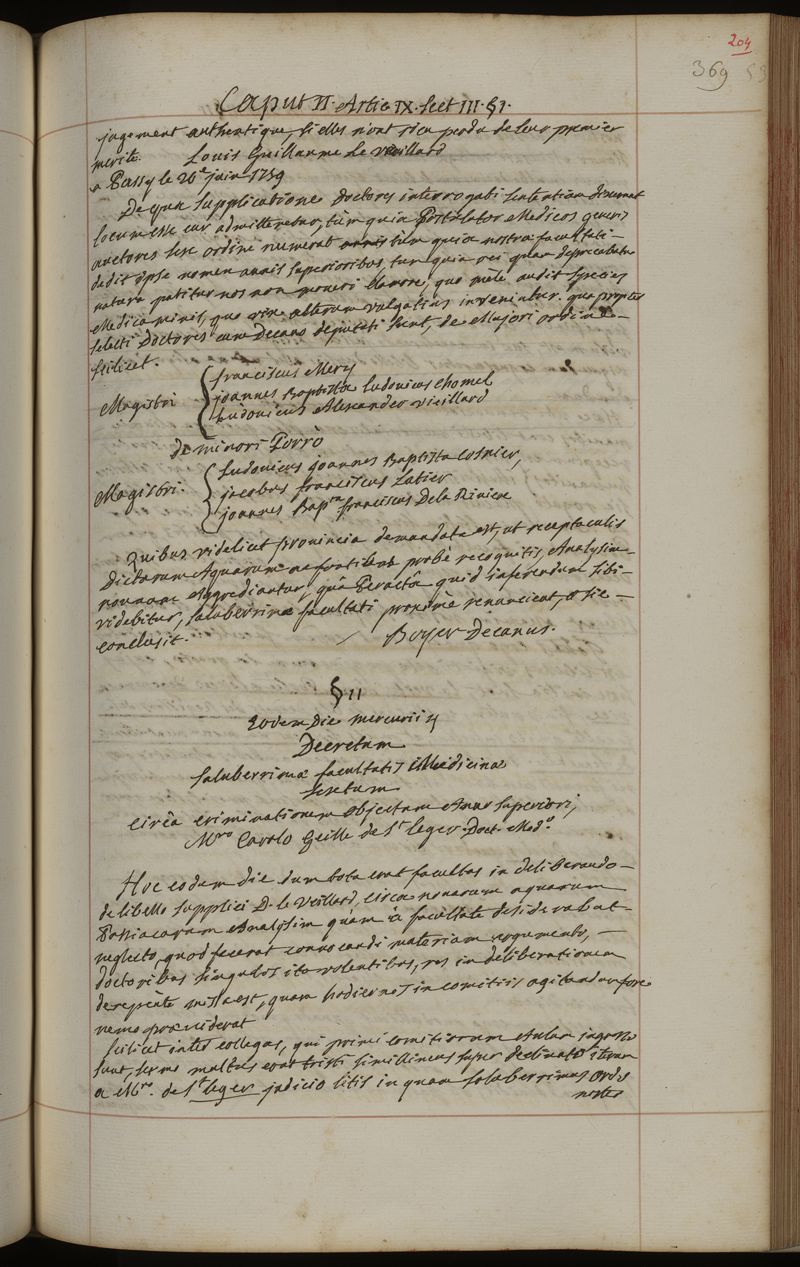 204
369 53
Caput VI. Artic IX. Sect III. §1.
jugement authentique, si elles n'ont rien perdu de leur premier
merite. Louis Guillaume Le Veillard
a Passy le 26e juin 1759
De qua supplicatione doctores interrogati sententiam dixerunt
locum esse cur admitteretur, tùm quia Postulator Medicos
auctores sese ordine numerat tùm quia nostræ facultati
dedit ipse nomen annis superioribus, tum quia rei quæ deprecabatur
natura patitur nos non moveri clamore, quo male audit species
Medicaminis, quo vix alterum vulgatius inveniatur. qua propter
selecti Doctores cum Decano deputati sunt, de Majori ordine
scilicet.
Magistri { franciscus Mery
joannes Baptista Ludovicus Chomel
Ludovicus Alexander Vieillard
de minori Porrò
Magistri. { Ludovicus joannes Baptista Cosnier,
jacobus franciscus Latier
joannes Bapta franciscus De la Riviere
Quibus videlicet provincia demandata est, ut receptaculis
Dictarum Aquarum ac fontibus probè recognitis, Analysim
novam aggrediantur, quâ Peractâ quid inferendum sibi
videbitur, saluberrimæ facultati proximè renuncient, et sic
conclusit. Boyer Decanus.
§ II
Eodem Die mercurii
Decretum
saluberrimæ facultatis Medicinæ
sextum
circà criminationem objectam Anno superiori,
Mro Carolo Geille de St leger Doct. Medo.
Hoc eodem die dum tota erat facultas in deliberando
de libello supplici D. le Veillard, circa novarum aquarum
Passiacarum Analysim quam a facultate desiderabat
neglecto, quod fecerat convocandi materiam argumento,
doctoribus singulis ita volentibus, res in deliberationem
derepente missa est, quam hodiernis in comitiis agitandam fore
nemo præviderat
scilicet inter collegas, qui primi comitiorum Aulam ingressi
sunt, sermo multus erat tristi simillimus super declinato iterum
a Mro. de St leger judicio litis in quam saluberrimus ordo
noster